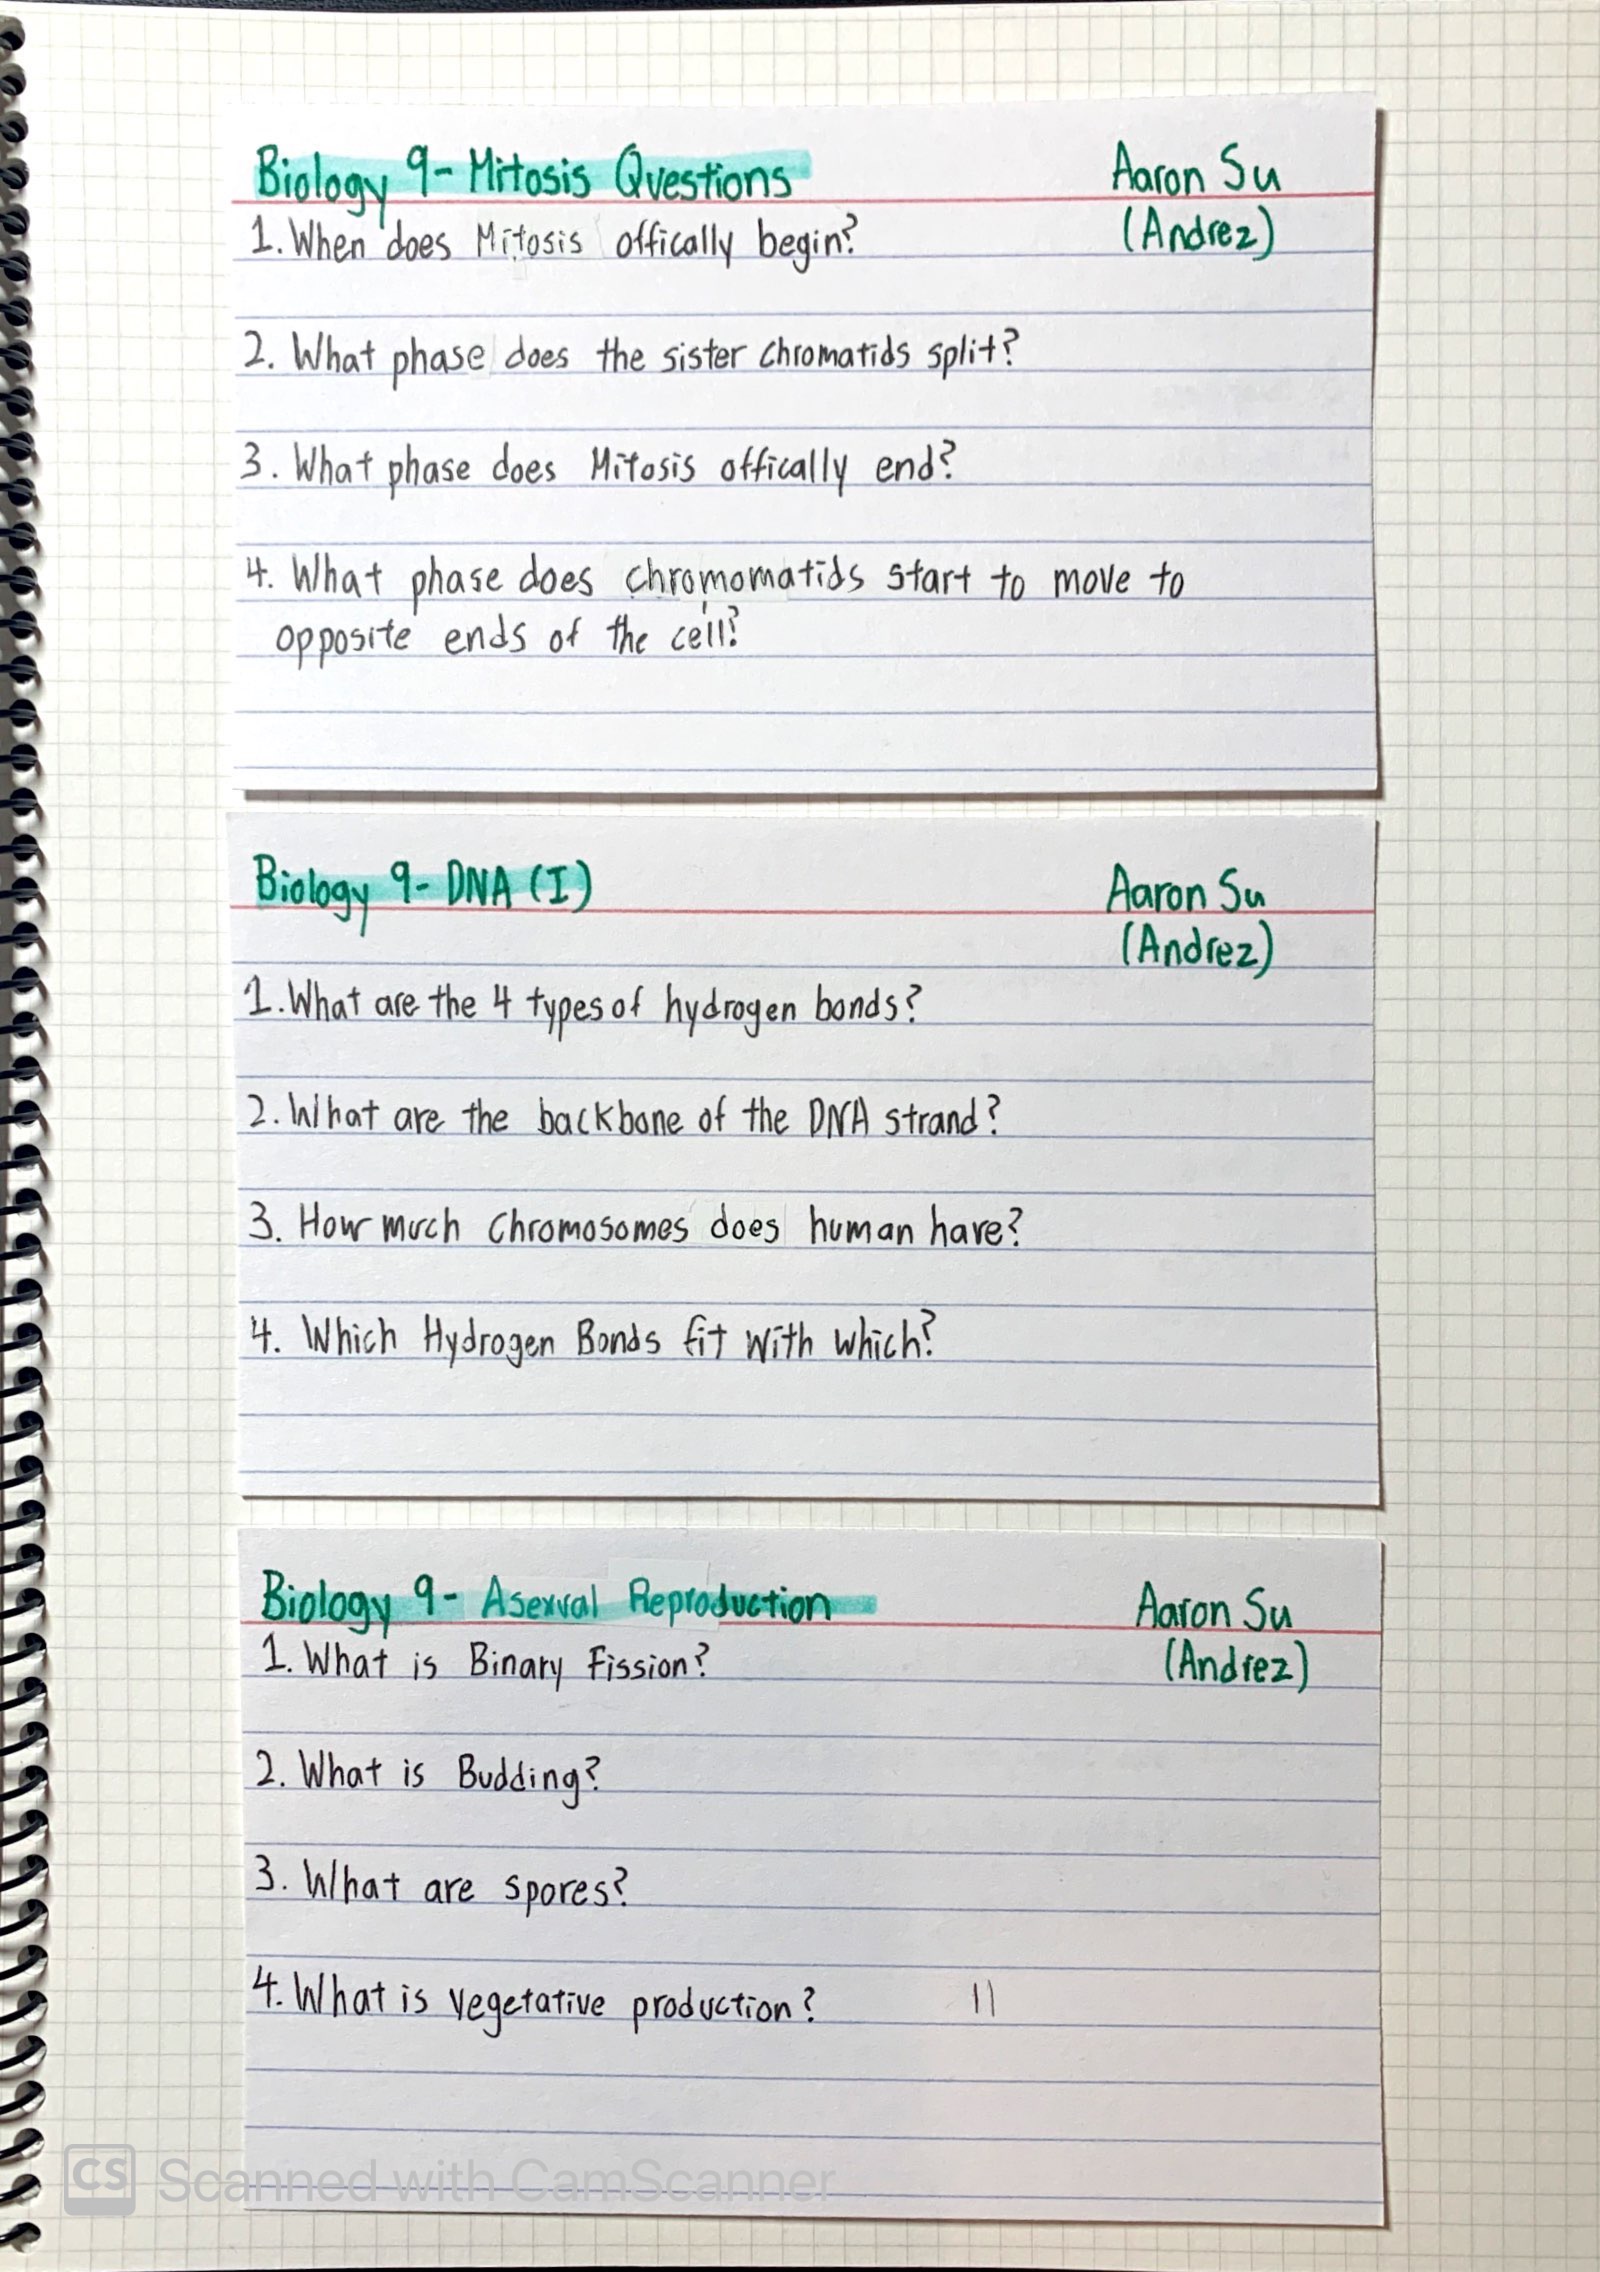 Biology 9- Mitosis Questions
Aaron Su
(Andrez)
1. When does Mitosis offically begin?
2. What phase does the sister chromatids split?
3. What phase does Mitosis offically end?
4. What phase does chromomatids start to move to
opposite ends of the cell?
Biology 9- DNA (I)
Aaron Su
(Andrez)
1. What are the 4 types of hydrogen bonds?
2. What are the backbone of the DNA strand?
3. How much Chromosomes does human have?
4. Which Hydrogen Bonds fit with which?
Biology 9- Asexual Reproduction
Aaron Su
(Andrez)
1. What is Binary Fission?
2. What is Budding?
3. What are spores?
4. What is vegetative production?
CS Scanned with CamScanner